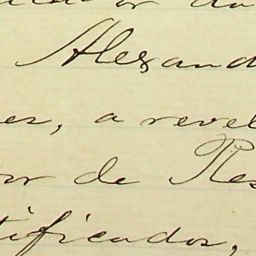 Alexand
es, a revel
or de Res
tificados,